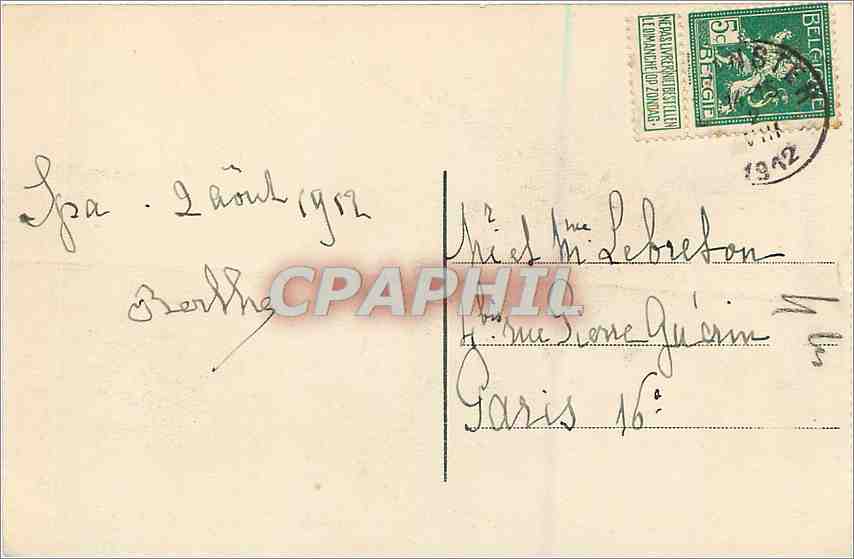 NE PAS LIVRER
LE DIMANCHE
NIET BESTELLEN
OP ZONDAG.
5c
BELGIQUE
BELGIË
NSTER
VIII
1912
Spa . 2 août 1912
Berthe
Mr et Mme Lebreton
4 bis rue Pierre Guérin
Paris 16e
4 bis
CPAPHIL